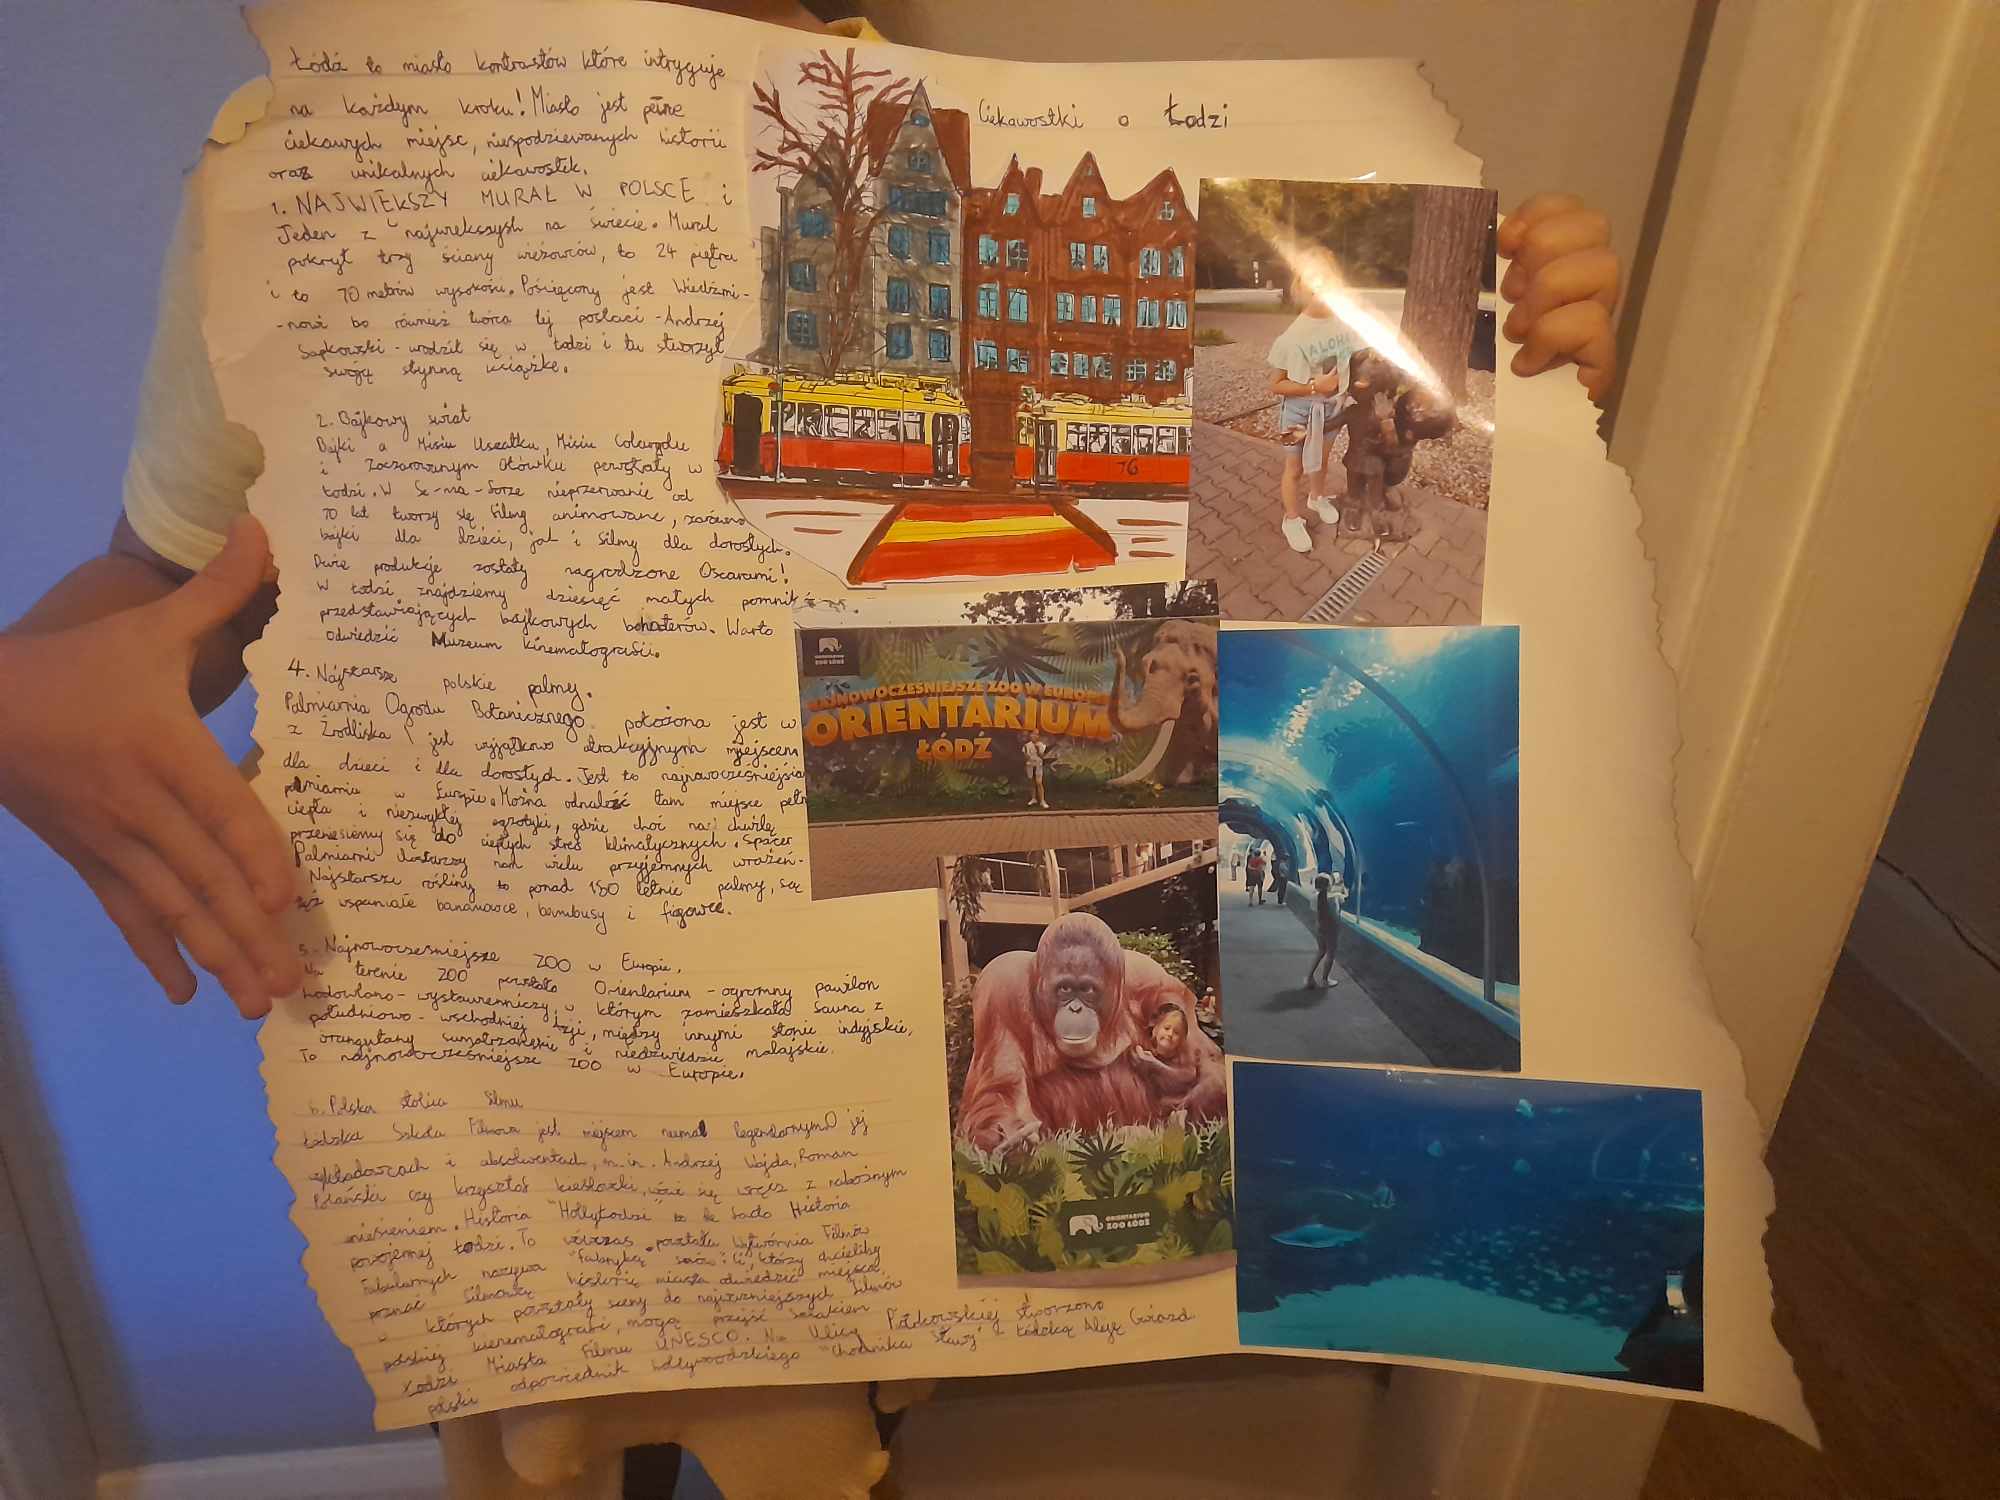 Ciekawostki o Łodzi
Łódź to miasto kontrastów które intryguje
na każdym kroku! Miasto jest pełne
ciekawych miejsc, niespodziewanych historii
oraz unikalnych ciekawostek.
1. NAJWIĘKSZY MURAL W POLSCE i
Jeden z najwiekszych na świecie. Mural
pokrył trzy ściany wieżowców, to 24 piętra
i to 70 metrów wysokości. Pościęcony jest Wiedźmi-
-nowi bo również twórca tej postaci - Andrzej
Sapkowski - urodził się w Łodzi i tu stworzył
swoją słynną książkę.
2. Bajkowy świat
Bajki o Misiu Uszatku, Misiu Colargolu
i Zaczarowanym Ołówku powstały w
Łodzi. W Se-ma-forze nieprzerwanie od
70 lat tworzy się filmy animowane, zarówno
bajki dla dzieci, jak i filmy dla dorosłych.
Dwie produkcje zostały nagrodzone Oscarami!
W Łodzi znajdziemy dziesięć małych pomnik
przedstawiających bajkowych bohaterów. Warto
odwiedzić Muzeum kinematografii.
4. Najstarsze polskie palmy.
Palmiarnia Ogrodu Botanicznego położona jest w
z Źródliska jest wyjątkowo atrakcyjnym miejscem
dla dzieci i dla dorosłych. Jest to najnowocześniejsza
palmiarnia w Europie. Można odnaleźć tam miejsce pełn
ciepła i niezwykłej egzotyki, gdzie choć na chwilę
przeniesiemy się do ciepłych stref klimatycznych. Spacer
Palmiarni dostarczy nam wielu przyjemnych wrażeń.
Najstarsze rośliny to ponad 150 letnie palmy, są
też wspaniałe bananowce, bambusy i figowce.
5. Najnowocześniejsze ZOO w Europie.
Na terenie ZOO powstało Orientarium - ogromny pawilon
hodowlano - wystawienniczy w którym zamieszkała fauna z
południowo - wschodniej Azji, między innymi słonie indyjskie,
orangutany sumatrzańskie i niedźwiedzie malajskie.
To najnowocześniejsze ZOO w Europie.
6. Polska stolica filmu
Łódzka Szkoła Filmowa jest miejscem niemal legendarnym. O jej
wykładowcach i absolwentach, m.in. Andrzej Wajda, Roman
Polański czy Krzysztof Kieślowski, mówi się wręcz z nabożnym
uniesieniem. Historia "Hollyłodzi" to
powojennej Łodzi. To wówczas powstała Wytwórnia Filmów
Fabularnych nazywa "Fabryką snów". Ci, którzy chcieliby
poznać filmową historię miasta odwiedzić miejsca,
w których powstały sceny do najważniejszych filmów
polskiej kinematografii, mogą przejść szlakiem
Łodzi Miasta Filmu UNESCO. Na Ulicy Piotrkowskiej stworzono
polski odpowiednik hollywoodzkiego "Chodnika Sławy" - Łódzką Aleję Gwiazd
76
ALOHA
ORIENTARIUM
ZOO ŁÓDŹ
NAJNOWOCZEŚNIEJSZE ZOO W EUROPIE
ORIENTARIUM
ŁÓDŹ
ORIENTARIUM
ZOO ŁÓDŹ